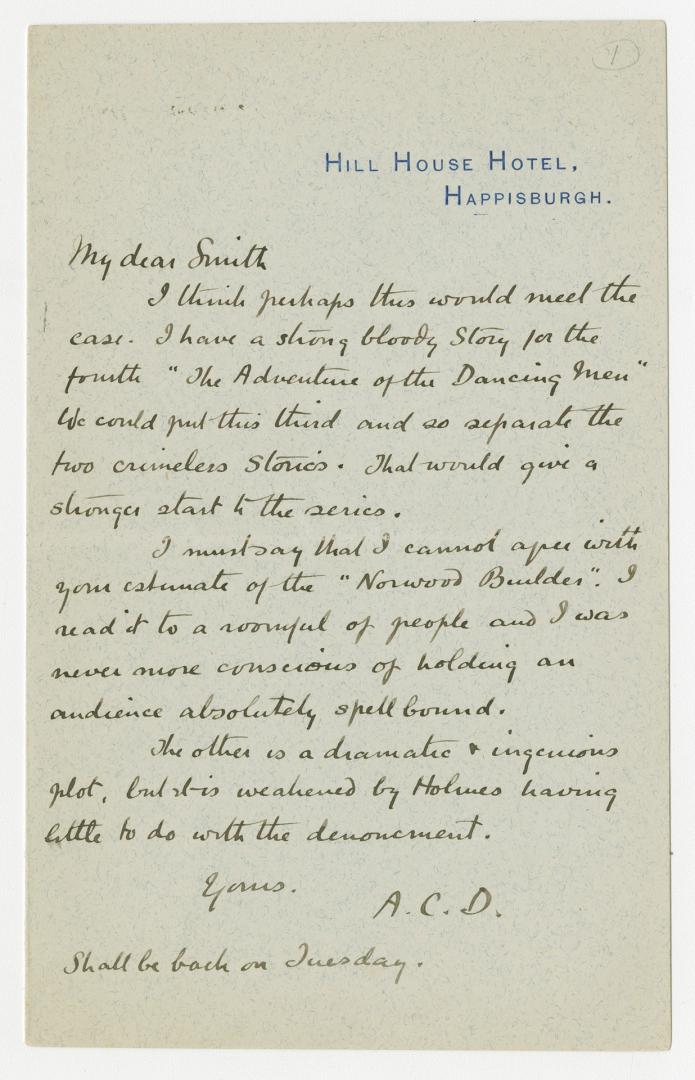 1
HILL HOUSE HOTEL,
HAPPISBURGH.
My dear Smith
I think perhaps this would meet the
case. I have a strong bloody Story for the
fourth "The Adventure of the Dancing Men"
We could put this third and so separate the
two crimeless Stories. That would give a
stronger start to the series.
I must say that I cannot agree with
your estimate of the "Norwood Builder". I
read it to a roomful of people and I was
never more conscious of holding an
audience absolutely spell bound.
The other is a dramatic & ingenious
plot, but it is weakened by Holmes having
little to do with the denoncment.
Yours.
A. C. D.
Shall be back on Tuesday.